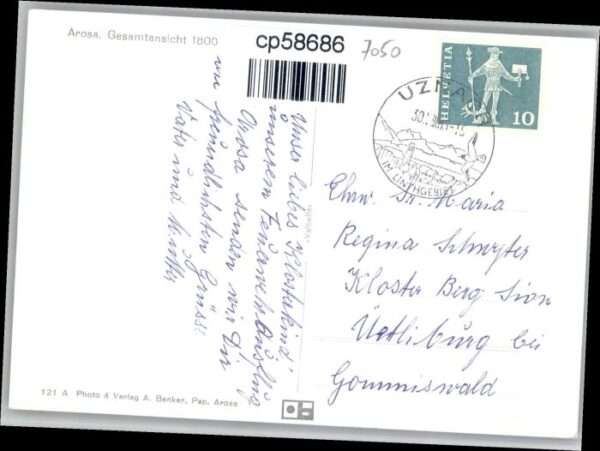 Arosa, Gesamtansicht 1800
cp58686
7050
HELVETIA
10
UZNA
IM LINTHGEBIET
Unser liebes Klosterkind!
unserem Ferienausflug
Arosa senden wir Dir
die freundlichsten Grüsse
Vater und Mutter
Ehrw. Sr. Maria
Regina Schwyter
Kloster Berg Sion
Uetliburg bei
Gommiswald
121 A Photo & Verlag A. Benker, Pap. Arosa